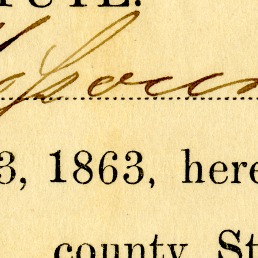 TUTE.
3, 1863, here
county, St